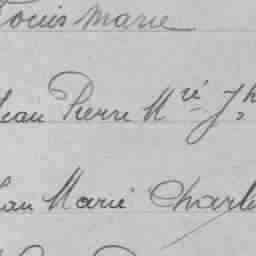 Louis Marie
Jean Pierre Mrie Jh
Jean Marie Charle